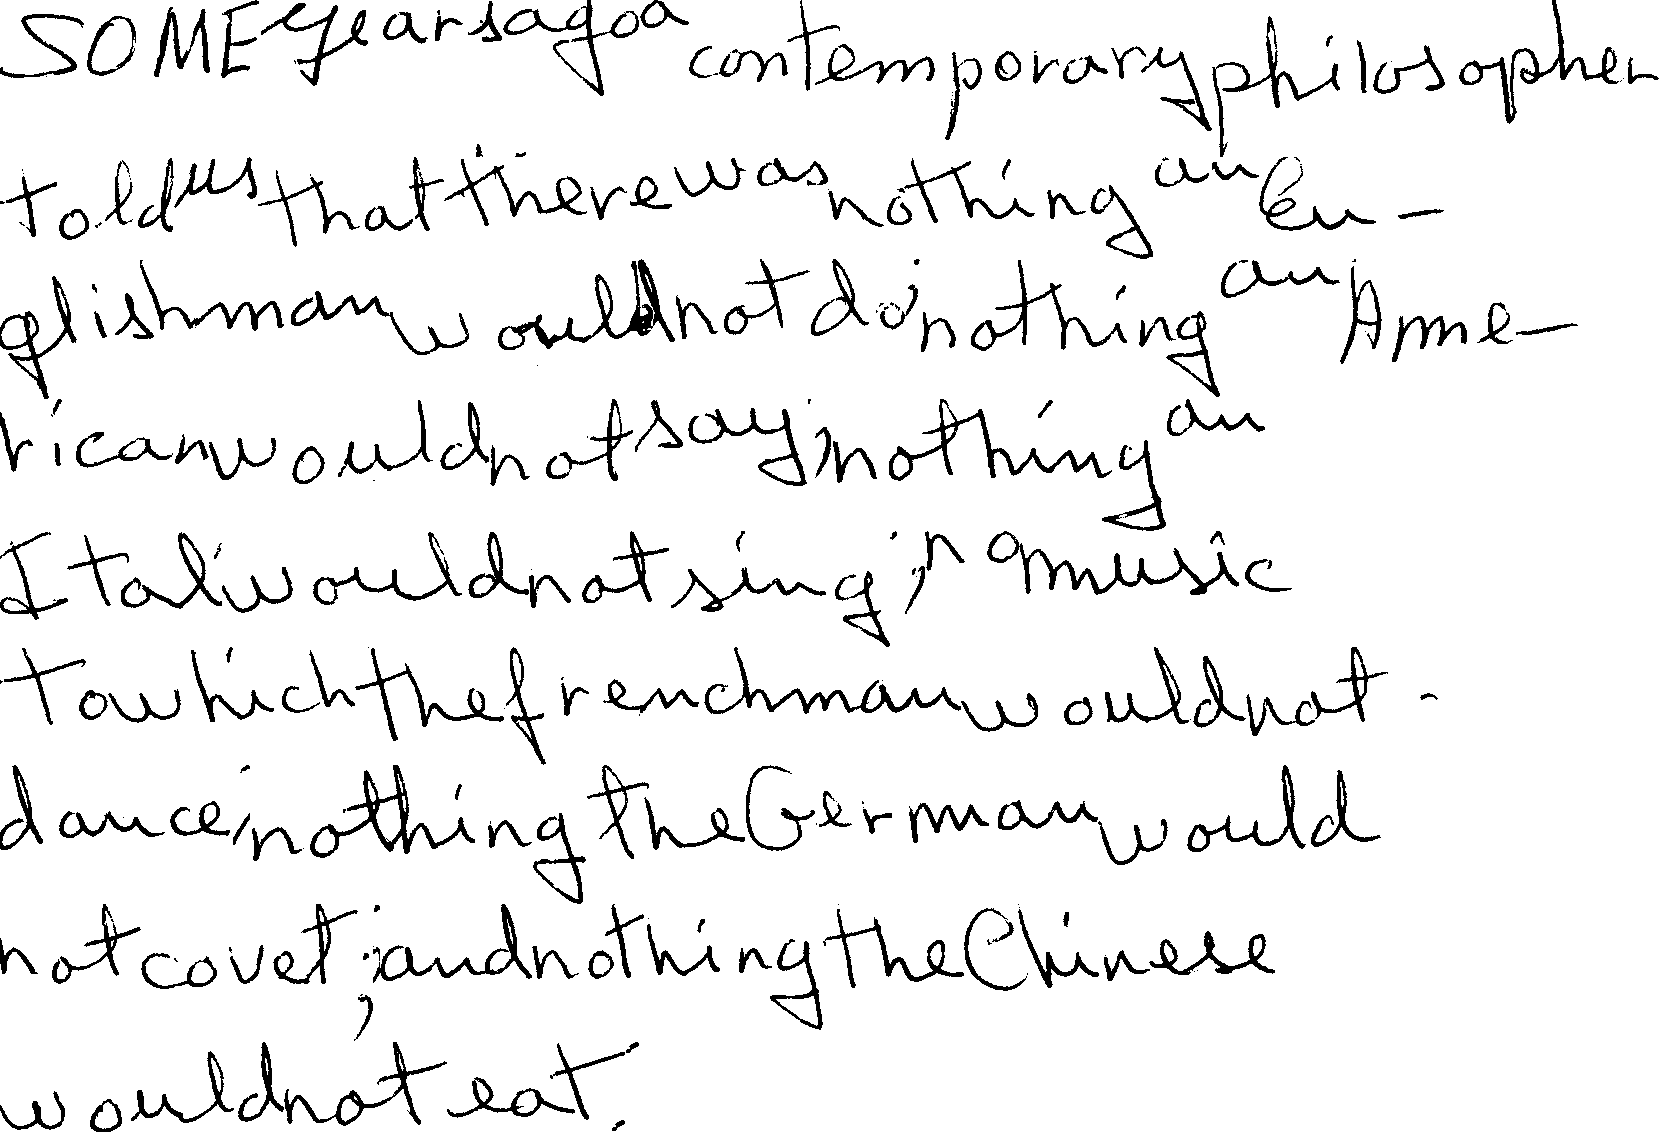 SOME years ago a contemporary philosopher
told us that there was nothing an En-
glishman would not do; nothing an Ame-
rican would not say; nothing an
Itali would not sing; no music
to which the frenchman would not
dance; nothing the German would
not covet; and nothing the Chinese
would not eat.